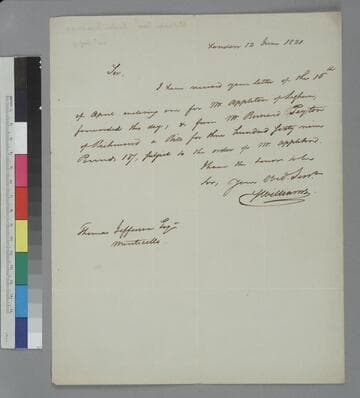 London 12 June 1821
Sir,
I have received your letter of the 16th
of April enclosing one for Mr Appleton of Leghorn,
forwarded this day; & from Mr Bernard Peyton
of Richmond a Bill for three hundred forty nine
Pounds 18/, subject to the order of Mr Appleton.
I have the honor to be
Sir, Your Obed Servt
Williams
Thomas Jefferson Esqr
Monticello.